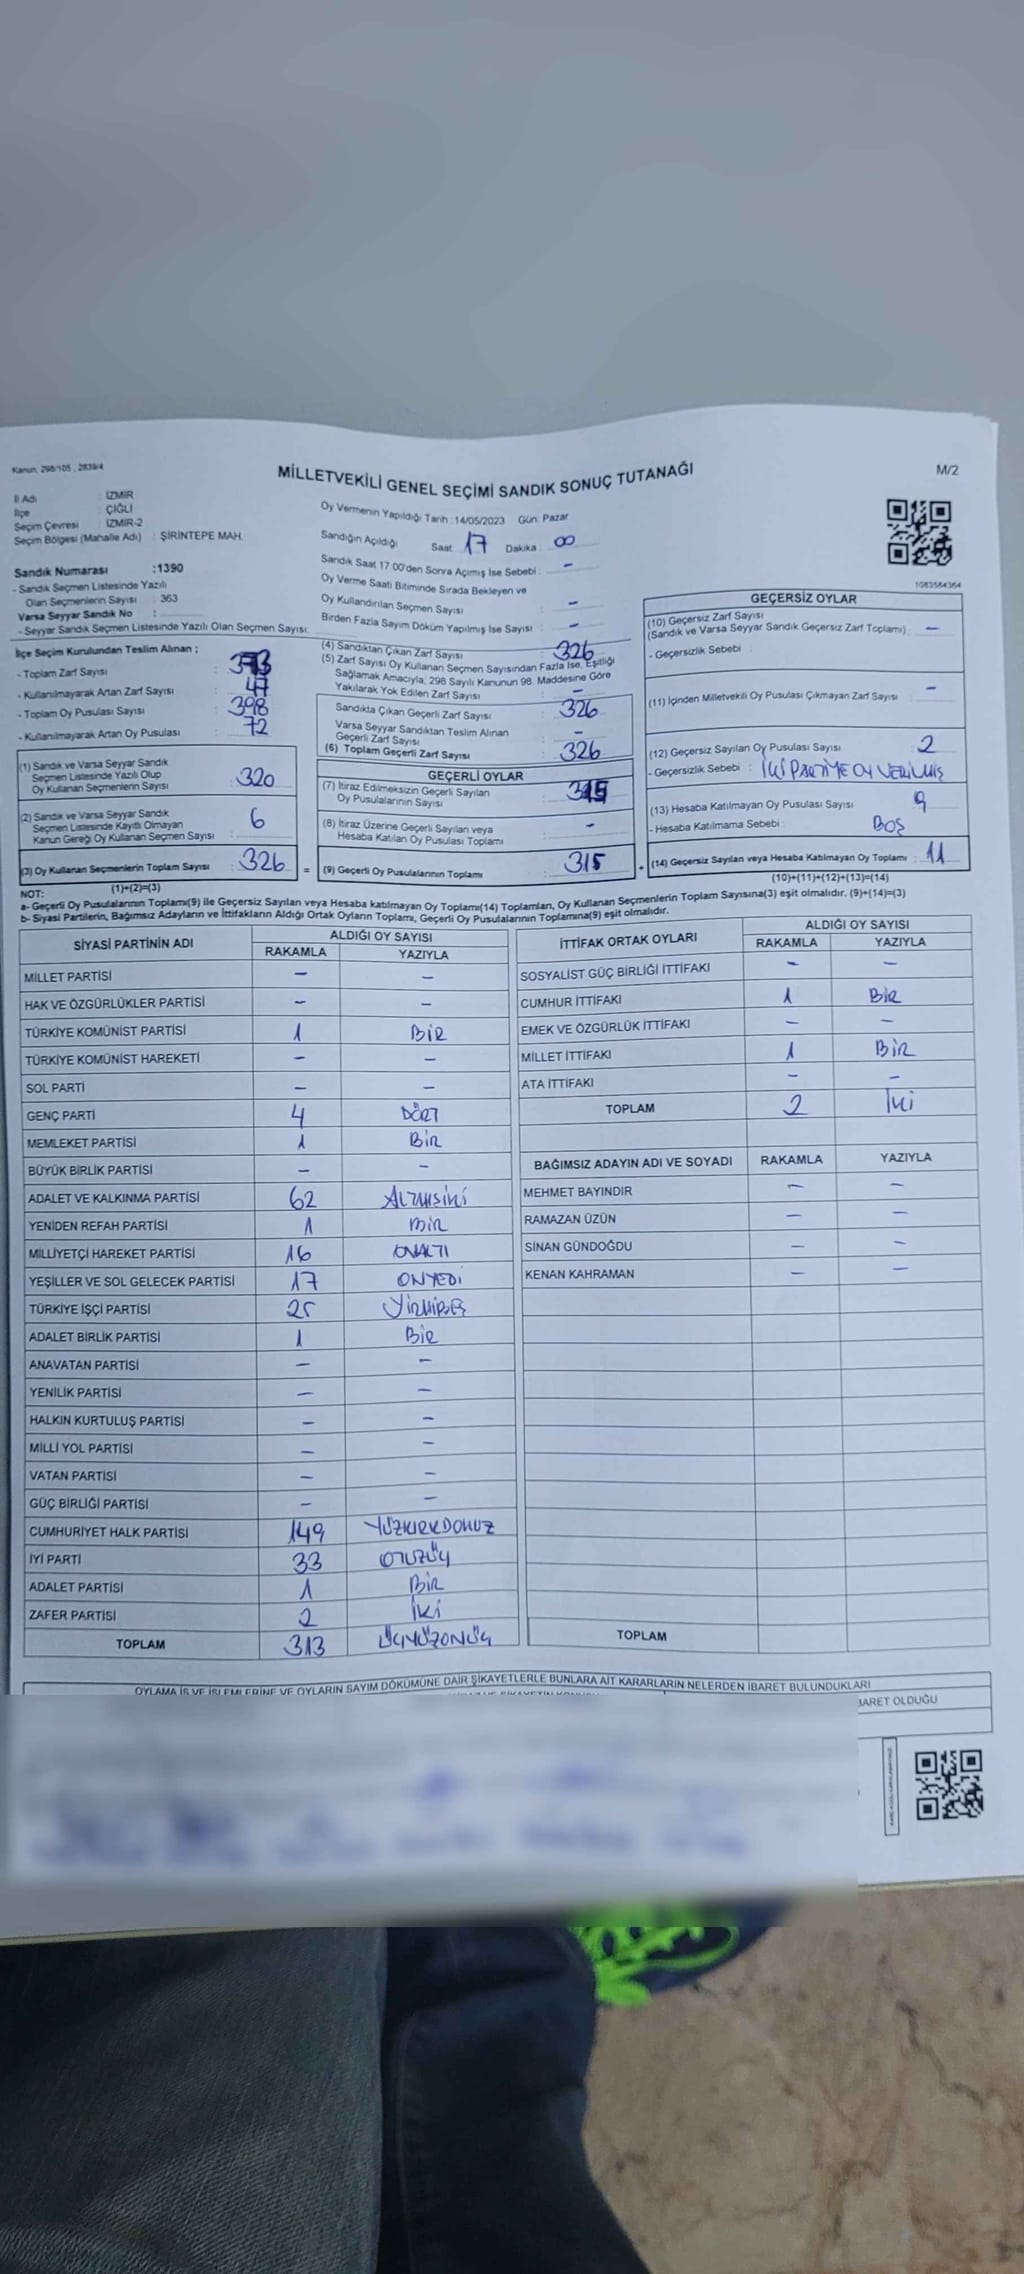 Kanun; 298/105 , 2839/4
MİLLETVEKİLİ GENEL SEÇİMİ SANDIK SONUÇ TUTANAĞI
M/2
İl Adı : İZMİR
İlçe : ÇİĞLİ
Seçim Çevresi : İZMİR-2
Seçim Bölgesi (Mahalle Adı) : ŞİRİNTEPE MAH.
Sandık Numarası :1390
- Sandık Seçmen Listesinde Yazılı
Olan Seçmenlerin Sayısı : 363
Varsa Seyyar Sandık No :
- Seyyar Sandık Seçmen Listesinde Yazılı Olan Seçmen Sayısı:
Oy Vermenin Yapıldığı Tarih :14/05/2023 Gün: Pazar
Sandığın Açıldığı Saat 17 Dakika : 00
Sandık Saat 17:00'den Sonra Açımış İse Sebebi : -
Oy Verme Saati Bitiminde Sırada Bekleyen ve
Oy Kullandırılan Seçmen Sayısı : -
Birden Fazla Sayım Döküm Yapılmış İse Sayısı : -
1083584364
İlçe Seçim Kurulundan Teslim Alınan ;
- Toplam Zarf Sayısı :
- Kullanılmayarak Artan Zarf Sayısı : 47
- Toplam Oy Pusulası Sayısı : 398
- Kullanılmayarak Artan Oy Pusulası : 72
(1) Sandık ve Varsa Seyyar Sandık
Seçmen Listesinde Yazılı Olup
Oy Kullanan Seçmenlerin Sayısı : 320
(2) Sandık ve Varsa Seyyar Sandık
Seçmen Listesinde Kayıtlı Olmayan
Kanun Gereği Oy Kullanan Seçmen Sayısı : 6
(3) Oy Kullanan Seçmenlerin Toplam Sayısı : 326
(1)+(2)=(3)
(4) Sandıktan Çıkan Zarf Sayısı : 326
(5) Zarf Sayısı Oy Kullanan Seçmen Sayısından Fazla İse, Eşitliği
Sağlamak Amacıyla, 298 Sayılı Kanunun 98. Maddesine Göre
Yakılarak Yok Edilen Zarf Sayısı : -
Sandıkta Çıkan Geçerli Zarf Sayısı : 326
Varsa Seyyar Sandıktan Teslim Alınan
Geçerli Zarf Sayısı : -
(6) Toplam Geçerli Zarf Sayısı : 326
GEÇERLİ OYLAR
(7) İtiraz Edilmeksizin Geçerli Sayılan
Oy Pusulalarının Sayısı : 315
(8) İtiraz Üzerine Geçerli Sayılan veya
Hesaba Katılan Oy Pusulası Toplamı : -
= (9) Geçerli Oy Pusulalarının Toplamı : 315 +
GEÇERSİZ OYLAR
(10) Geçersiz Zarf Sayısı
(Sandık ve Varsa Seyyar Sandık Geçersiz Zarf Toplamı) : -
- Geçersizlik Sebebi :
(11) İçinden Milletvekili Oy Pusulası Çıkmayan Zarf Sayısı : -
(12) Geçersiz Sayılan Oy Pusulası Sayısı : 2
- Geçersizlik Sebebi : İKİ PARTİYE OY VERİLMİŞ
(13) Hesaba Katılmayan Oy Pusulası Sayısı : 9
- Hesaba Katılmama Sebebi : BOŞ
(14) Geçersiz Sayılan veya Hesaba Katılmayan Oy Toplamı : 11
(10)+(11)+(12)+(13)=(14)
NOT:
a- Geçerli Oy Pusulalarının Toplamı(9) ile Geçersiz Sayılan veya Hesaba katılmayan Oy Toplamı(14) Toplamları, Oy Kullanan Seçmenlerin Toplam Sayısına(3) eşit olmalıdır. (9)+(14)=(3)
b- Siyasi Partilerin, Bağımsız Adayların ve İttifakların Aldığı Ortak Oyların Toplamı, Geçerli Oy Pusulalarının Toplamına(9) eşit olmalıdır.
SİYASİ PARTİNİN ADI ALDIĞI OY SAYISI
RAKAMLA YAZIYLA
MİLLET PARTİSİ - -
HAK VE ÖZGÜRLÜKLER PARTİSİ - -
TÜRKİYE KOMÜNİST PARTİSİ 1 BİR
TÜRKİYE KOMÜNİST HAREKETİ - -
SOL PARTİ - -
GENÇ PARTİ 4 DÖRT
MEMLEKET PARTİSİ 1 BİR
BÜYÜK BİRLİK PARTİSİ - -
ADALET VE KALKINMA PARTİSİ 62 ALTMIŞİKİ
YENİDEN REFAH PARTİSİ 1 BİR
MİLLİYETÇİ HAREKET PARTİSİ 16 ONALTI
YEŞİLLER VE SOL GELECEK PARTİSİ 17 ONYEDİ
TÜRKİYE İŞÇİ PARTİSİ 25 YİRMİBEŞ
ADALET BİRLİK PARTİSİ 1 BİR
ANAVATAN PARTİSİ - -
YENİLİK PARTİSİ - -
HALKIN KURTULUŞ PARTİSİ - -
MİLLİ YOL PARTİSİ - -
VATAN PARTİSİ - -
GÜÇ BİRLİĞİ PARTİSİ - -
CUMHURİYET HALK PARTİSİ 149 YÜZKIRKDOKUZ
İYİ PARTİ 33 OTUZÜÇ
ADALET PARTİSİ 1 BİR
ZAFER PARTİSİ 2 İKİ
TOPLAM 313 ÜÇYÜZONÜÇ
İTTİFAK ORTAK OYLARI ALDIĞI OY SAYISI
RAKAMLA YAZIYLA
SOSYALİST GÜÇ BİRLİĞİ İTTİFAKI - -
CUMHUR İTTİFAKI 1 BİR
EMEK VE ÖZGÜRLÜK İTTİFAKI - -
MİLLET İTTİFAKI 1 BİR
ATA İTTİFAKI - -
TOPLAM 2 İKİ
BAĞIMSIZ ADAYIN ADI VE SOYADI RAKAMLA YAZIYLA
MEHMET BAYINDIR - -
RAMAZAN ÜZÜN - -
SİNAN GÜNDOĞDU - -
KENAN KAHRAMAN - -
TOPLAM
OYLAMA İŞ VE İŞLEMLERİNE VE OYLARIN SAYIM DÖKÜMÜNE DAİR ŞİKAYETLERLE BUNLARA AİT KARARLARIN NELERDEN İBARET BULUNDUKLARI
İBARET OLDUĞU